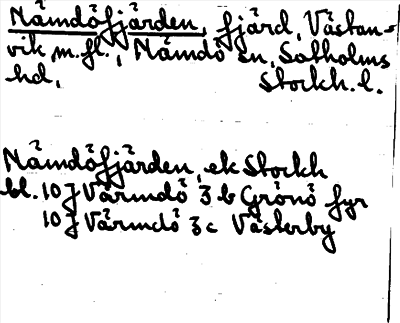 Nämdöfjärden, fjärd, Västan-
vik m.fl., Nämdö sn, Sotholms
hd, Stockh. l.
Nämdöfjärden, ek Stockh
bl. 10 J Värmdö 3 b Grönö fyr
10 J Värmdö 3 c Västerby